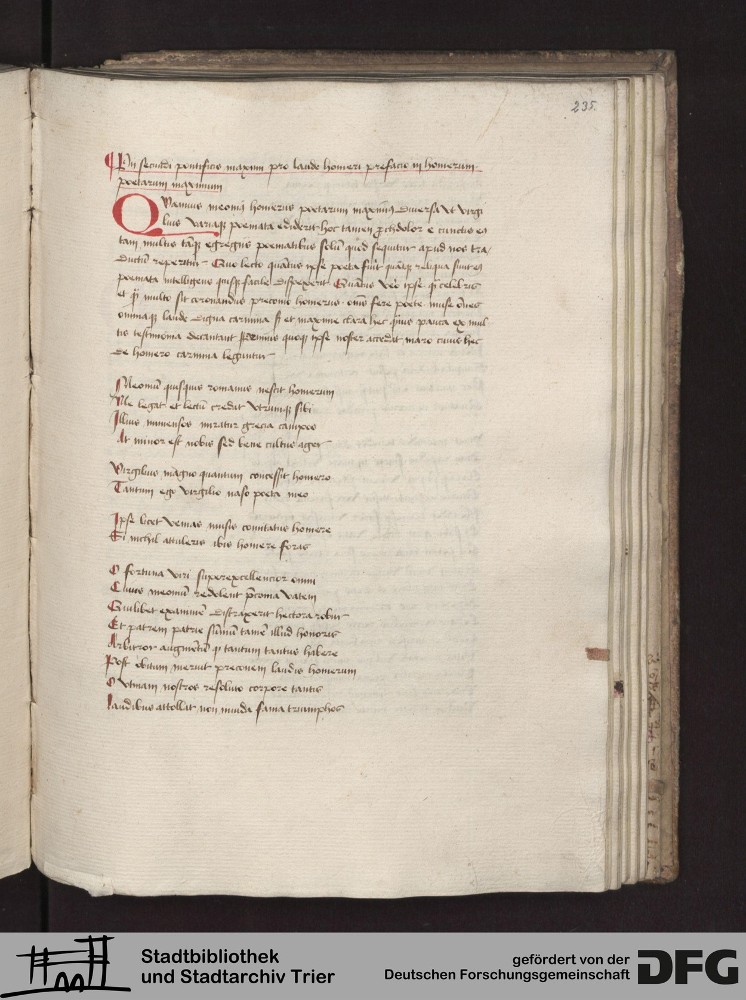 235.
Pii secundi pontificis maximi pro laude homeri prefacio in homerum
poetarum maximum
Quamuis meoniꝰ homerus poetarum maximꝰ diuersa vt virgi
lius variaqꝫ poemata ediderit hoc tamen ꝓchdolor e cunctis eiꝰ
tam multis tāqꝫ egregiis poematibus solū quod sequitur apud nos tra/
ductū reperitur Quo lecto quātus ipse poeta fuit quāqꝫ reliqua sunt eiꝰ
poemata intelligens quisqꝫ facile
et multo sit coronandus preconio homerus omēs fere poete
omniaqꝫ laude digna carmina et maxime clara hec pauca ex mul
tis testimonia decantant quoqꝫ ipse noster accedat maro cuius hec
de homero carmina leguntur
Meoniū quisquis romanus nescit homerum
Me legat et lectū credat vtrumqꝫ sibi
Illius immensos miratur grecia campos
At minor est nobis sed bene cultus ager
Virgilius magno quantum concessit homero
Tantum ego virgilio naso poeta meo
Ipse licet venias musis comitatus homere
Si nichil attuleris ibis homere foras
O fortuna viri superexcellencior omni
Cuius meoniū redolent pconia vatem
Quilibet exanimē distraxerit hectora robur
Et patrem patrie sūmū tamē illud honoris
Arbitror augmētū qꝫ tantum tantus habere
Post obitum meruit preconem laudis homerum
O vtinam nostros resoluto corpore tantis
Laudibus attollat non inuida fama triumphos
Stadtbibliothek
und Stadtarchiv Trier
gefördert von der
Deutschen Forschungsgemeinschaft
DFG